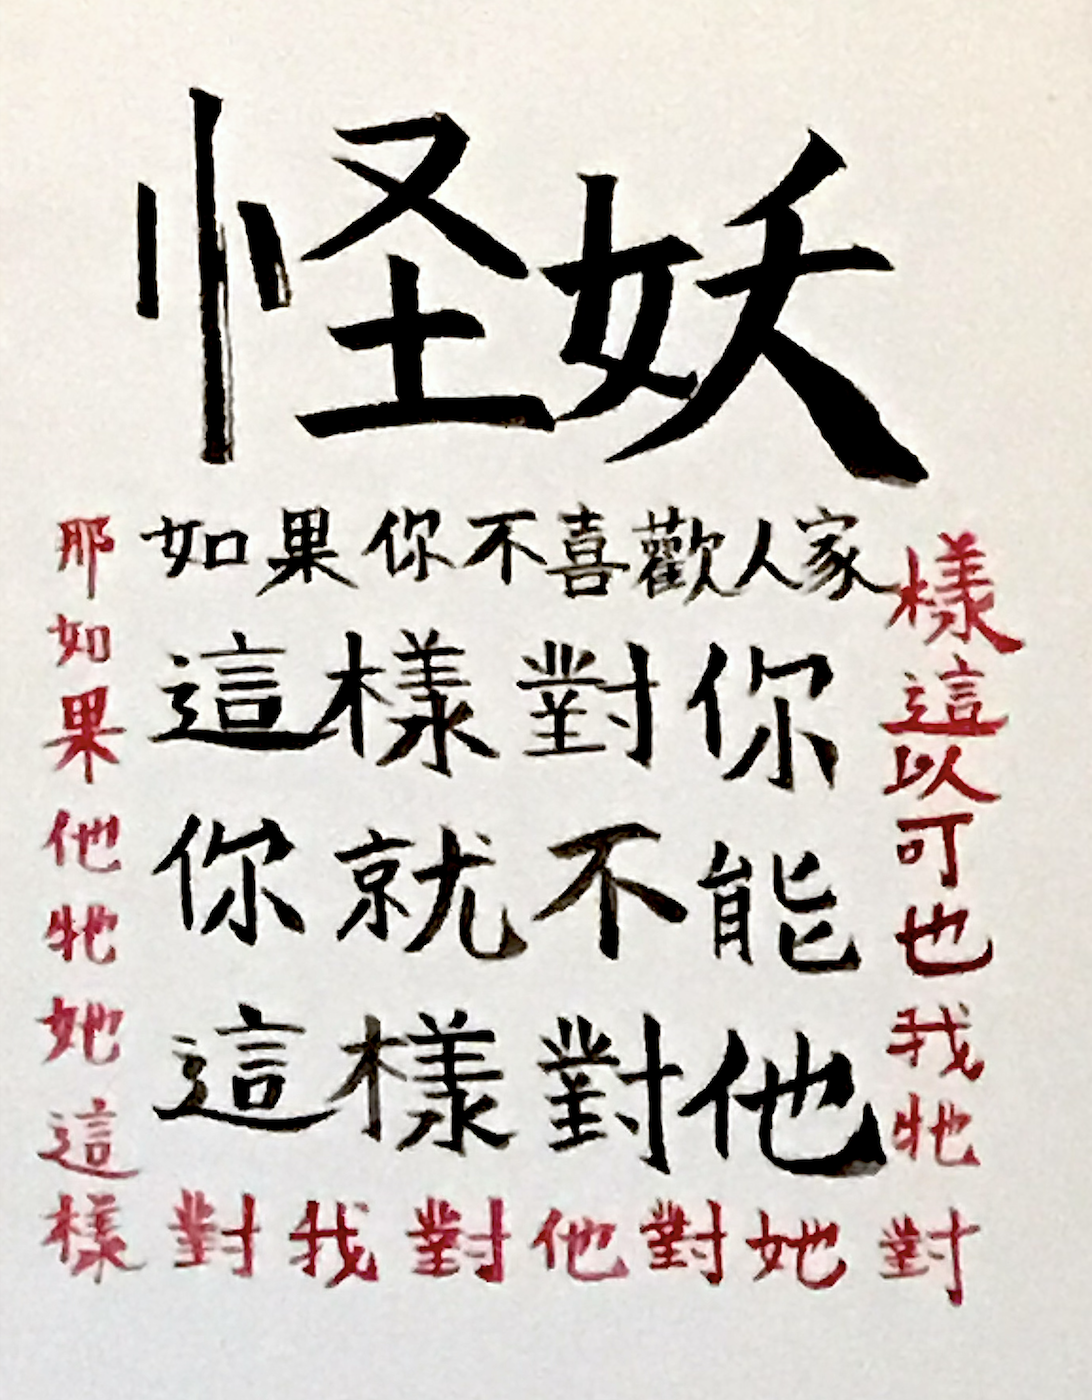 怪妖
如果你不喜歡人家
這樣對你
你就不能
這樣對他
那如果他牠她這樣
對我對他對她對
牠我也可以這樣